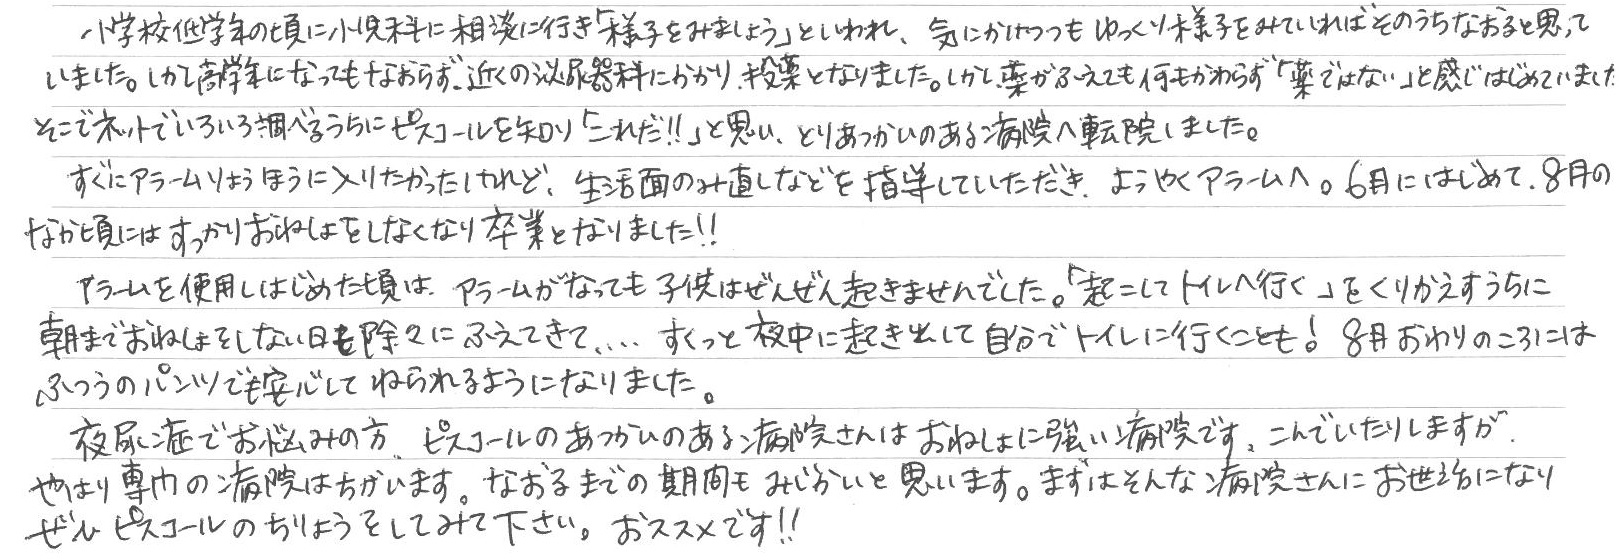 小学校低学年の頃に小児科に相談に行き「様子をみましょう」といわれ、気にかけつつもゆっくり様子をみていればそのうちなおると思って
いました。しかし高学年になってもなおらず、近くの泌尿器科にかかり、投薬となりました。しかし、薬がふえても何もかわらず「薬ではない」と感じはじめていました
そこでネットでいろいろ調べるうちにピスコールを知り「これだ!!」と思い、とりあつかいのある病院へ転院しました。
すぐにアラームりょうほうに入りたかったけれど、生活面のみ直しなどを指導していただき、ようやくアラームへ。6月にはじめて、8月の
なか頃にはすっかりおねしょをしなくなり卒業となりました!!
アラームを使用しはじめた頃は、アラームがなっても子供はぜんぜん起きませんでした。「起こしてトイレへ行く」をくりかえすうちに
朝までおねしょをしない日も除々にふえてきて、… すくっと夜中に起き出して自分でトイレに行くことも! 8月おわりのころには
ふつうのパンツでも安心してねられるようになりました。
夜尿症でお悩みの方、ピスコールのあつかいのある病院さんはおねしょに強い病院です、こんでいたりしますが、
やはり専門の病院はちがいます。なおるまでの期間もみじかいと思います。まずはそんな病院さんにお世話になり
ぜひピスコールのちりょうをしてみて下さい。おススメです!!